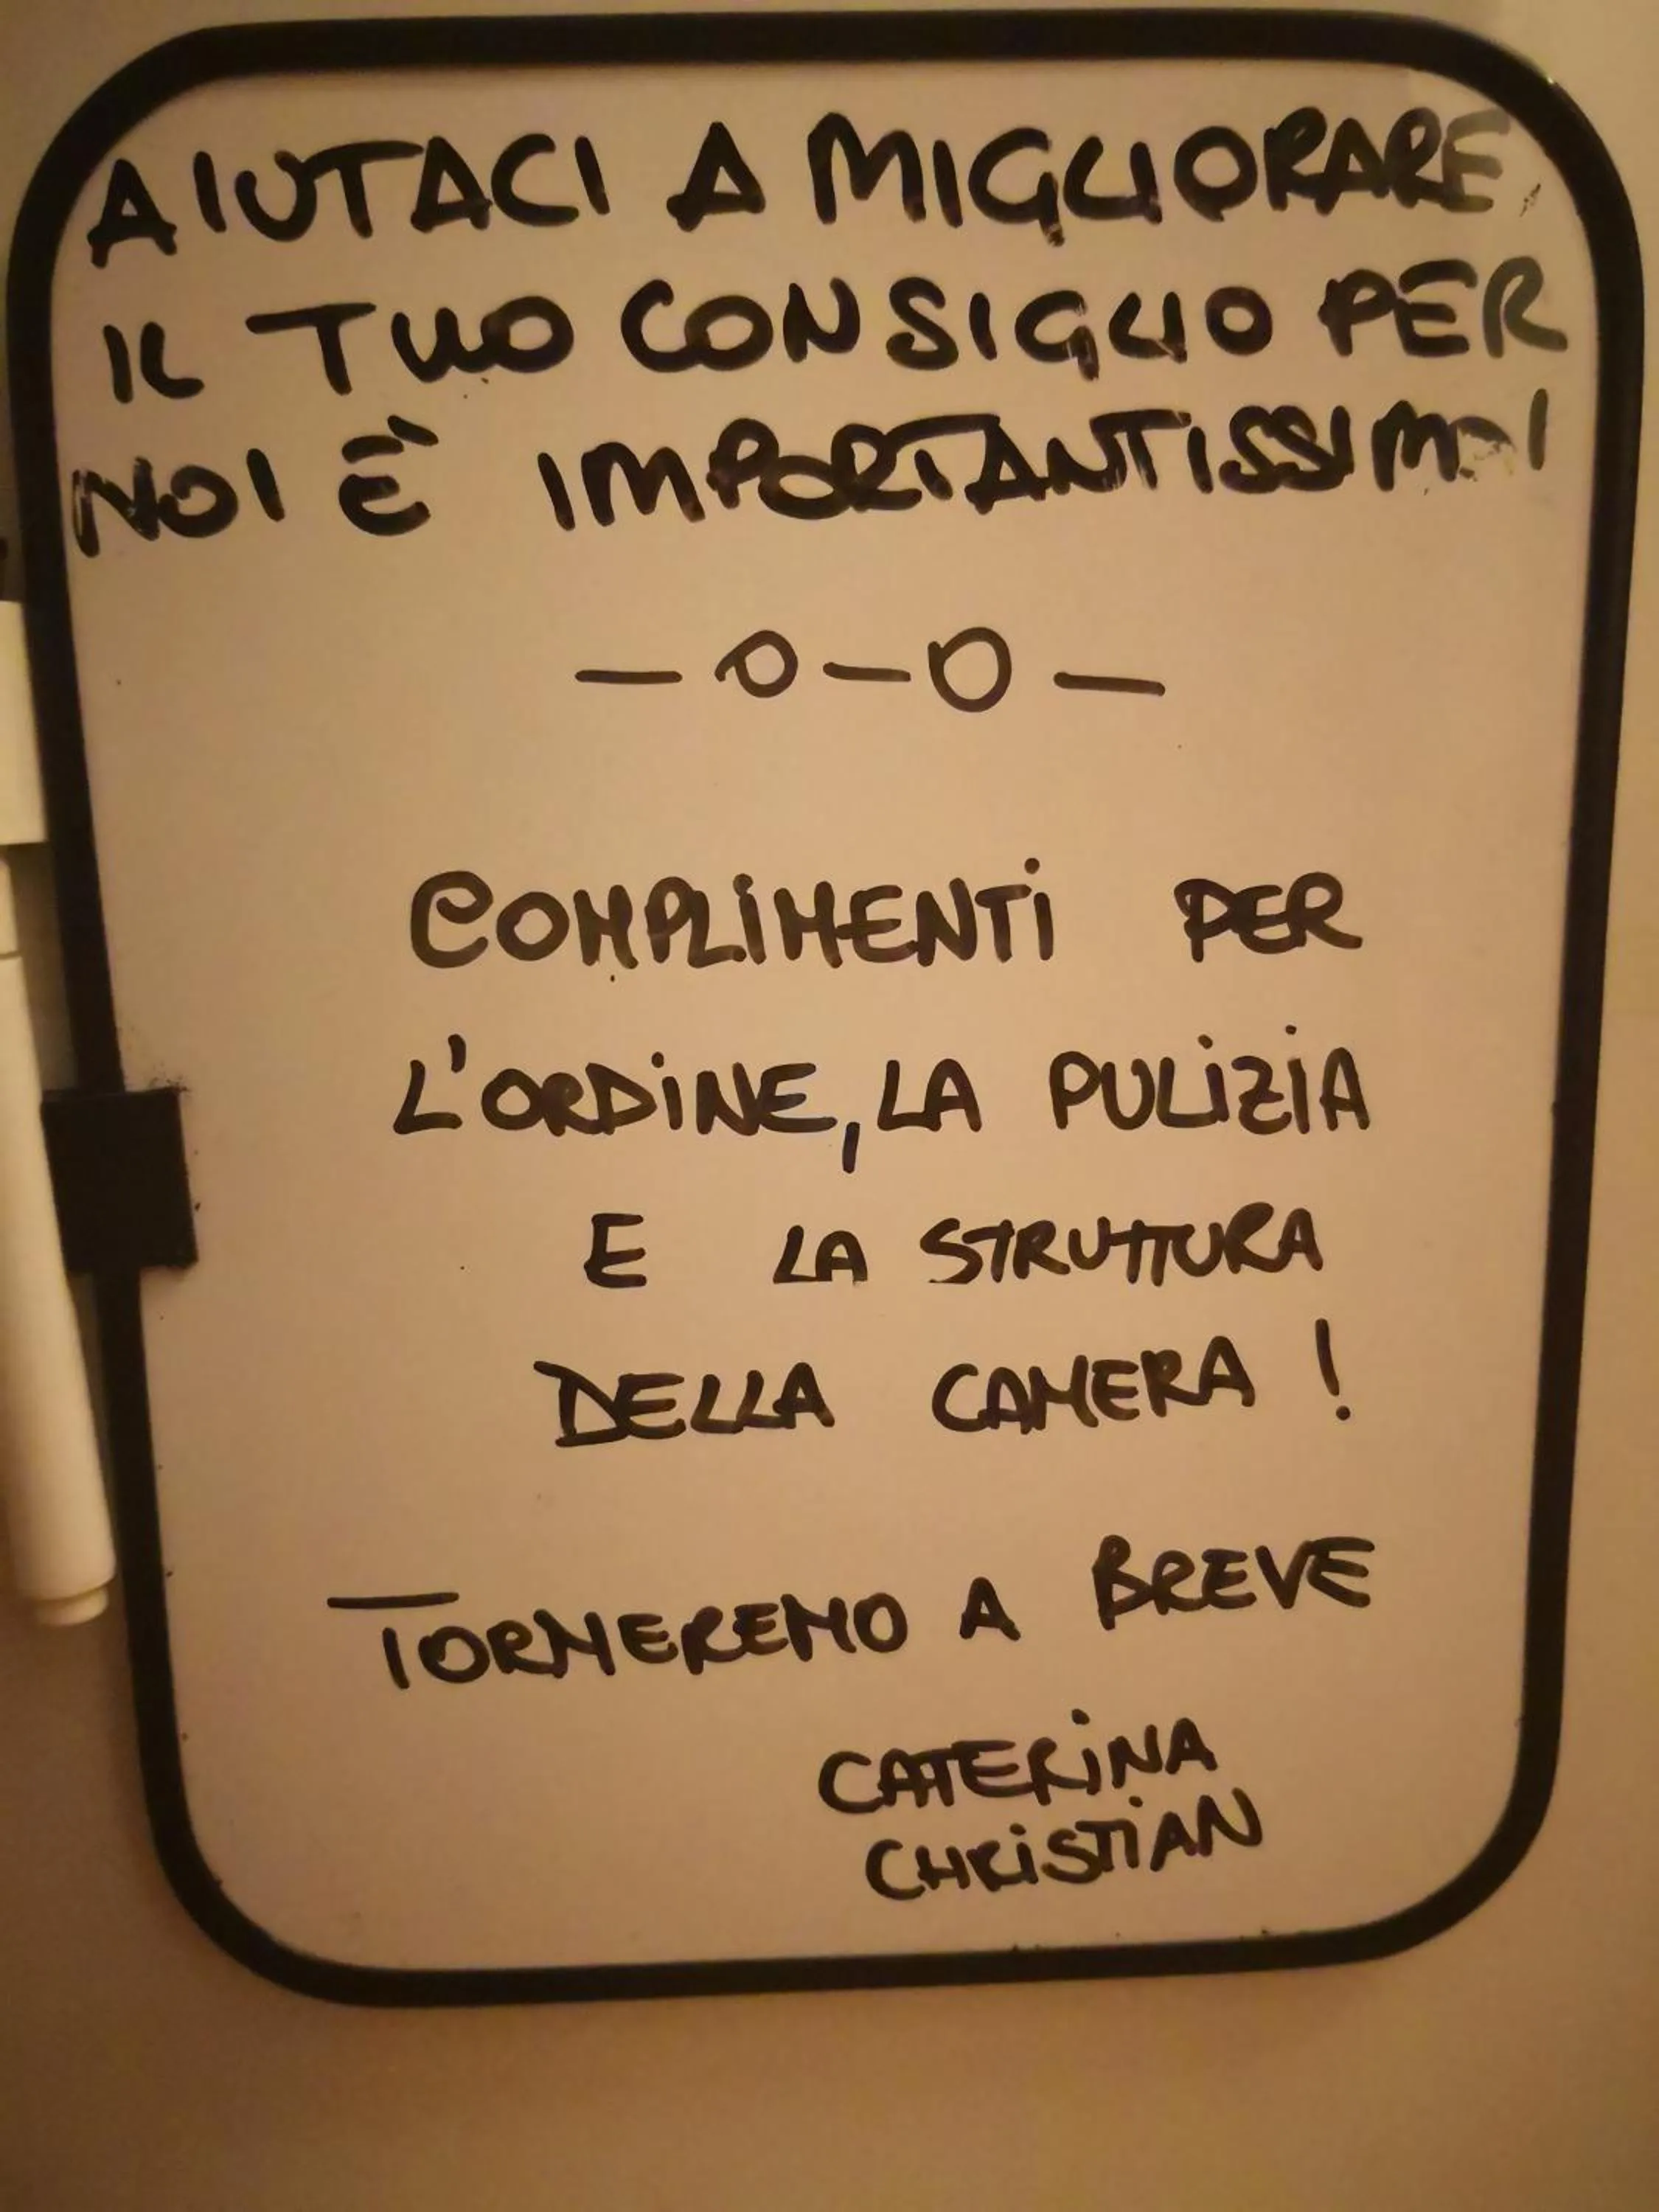 AIUTACI A MIGLIORARE,
IL TUO CONSIGLIO PER
NOI È
— O — O —
COMPLIMENTI PER
L'ORDINE, LA PULIZIA
E LA STRUTTURA
DELLA CAMERA!
TORNEREMO A BREVE
CATERINA
CHRISTIAN